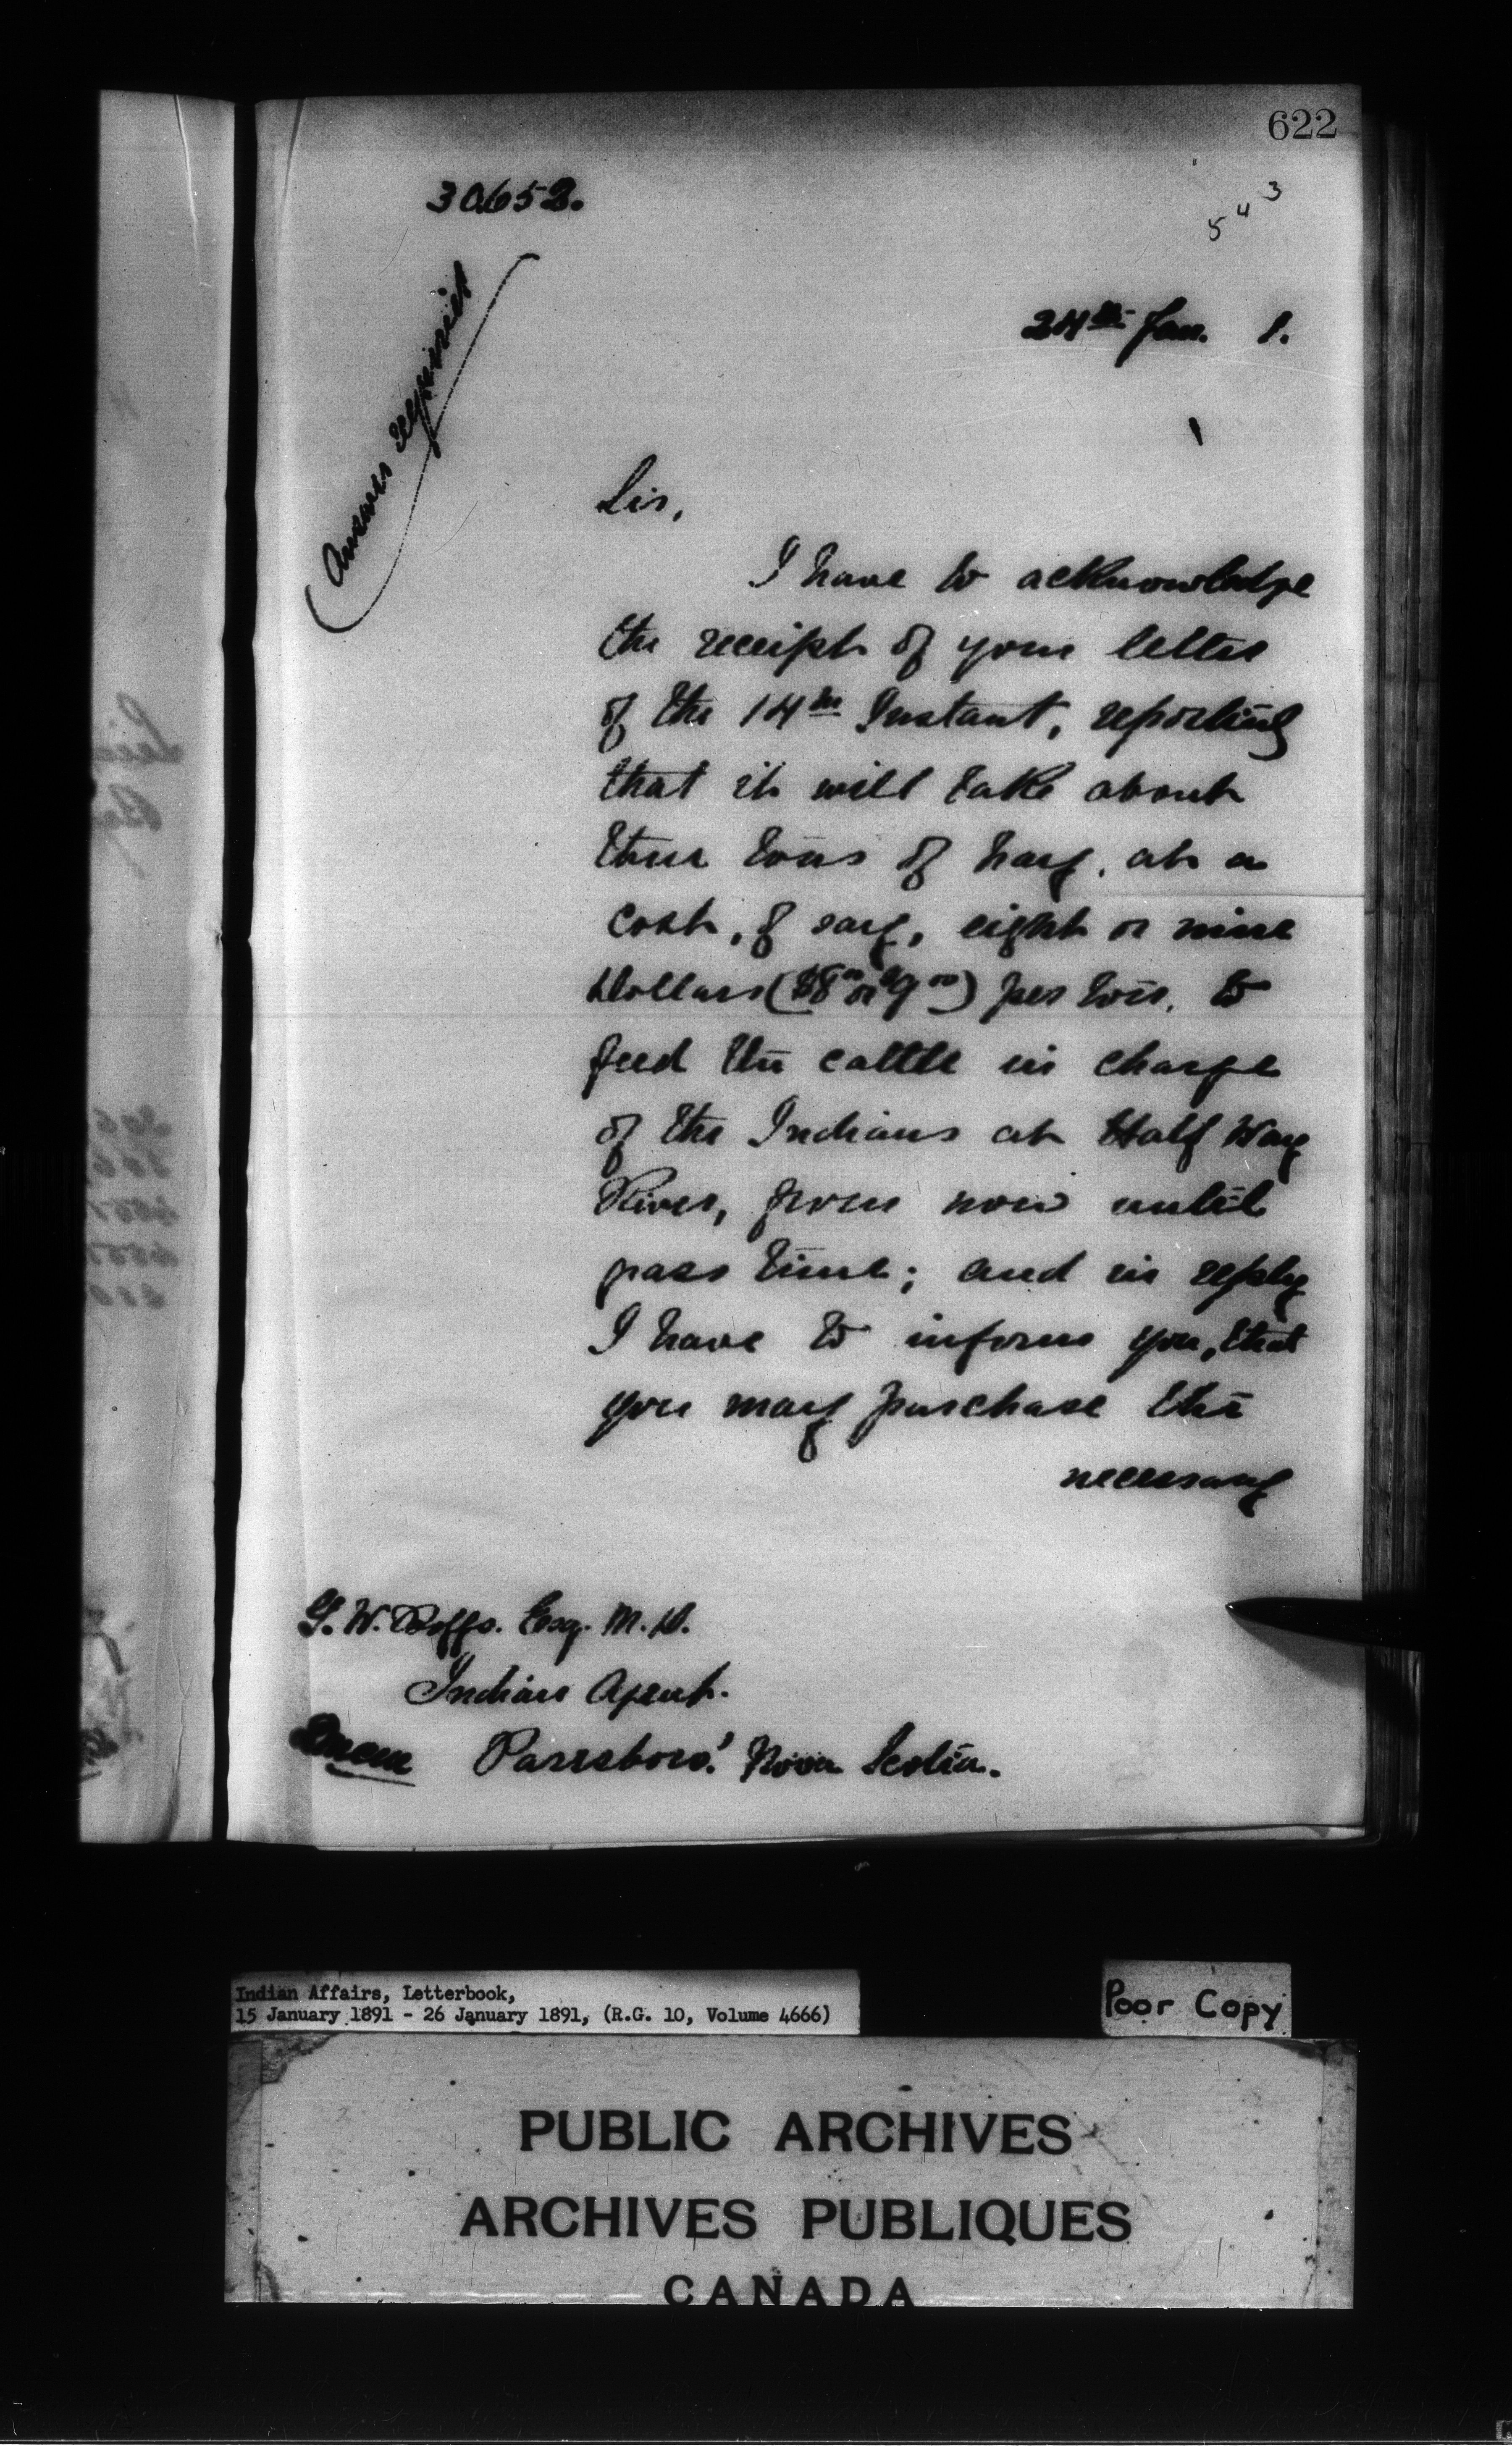 622
30652.
543
24th Jan. 1.
Answer required
Sir,
I have to acknowledge
the receipt of your letter
of the 14th Instant, reporting
that it will take about
three tons of hay, at a
cost, of say, eight or nine
Dollars ($8.00 or $9.00) per ton, to
feed the cattle in charge
of the Indians at Half Way
River, from now until
grass time; and in reply
I have to inform you, that
you may purchase the
necessary
W. Esq. M.D.
Indian Agent.
Parrsboro' Nova Scotia.
Indian Affairs, Letterbook,
15 January 1891 - 26 January 1891, (R.G. 10, Volume 4666)
Poor Copy
PUBLIC ARCHIVES
ARCHIVES PUBLIQUES
CANADA